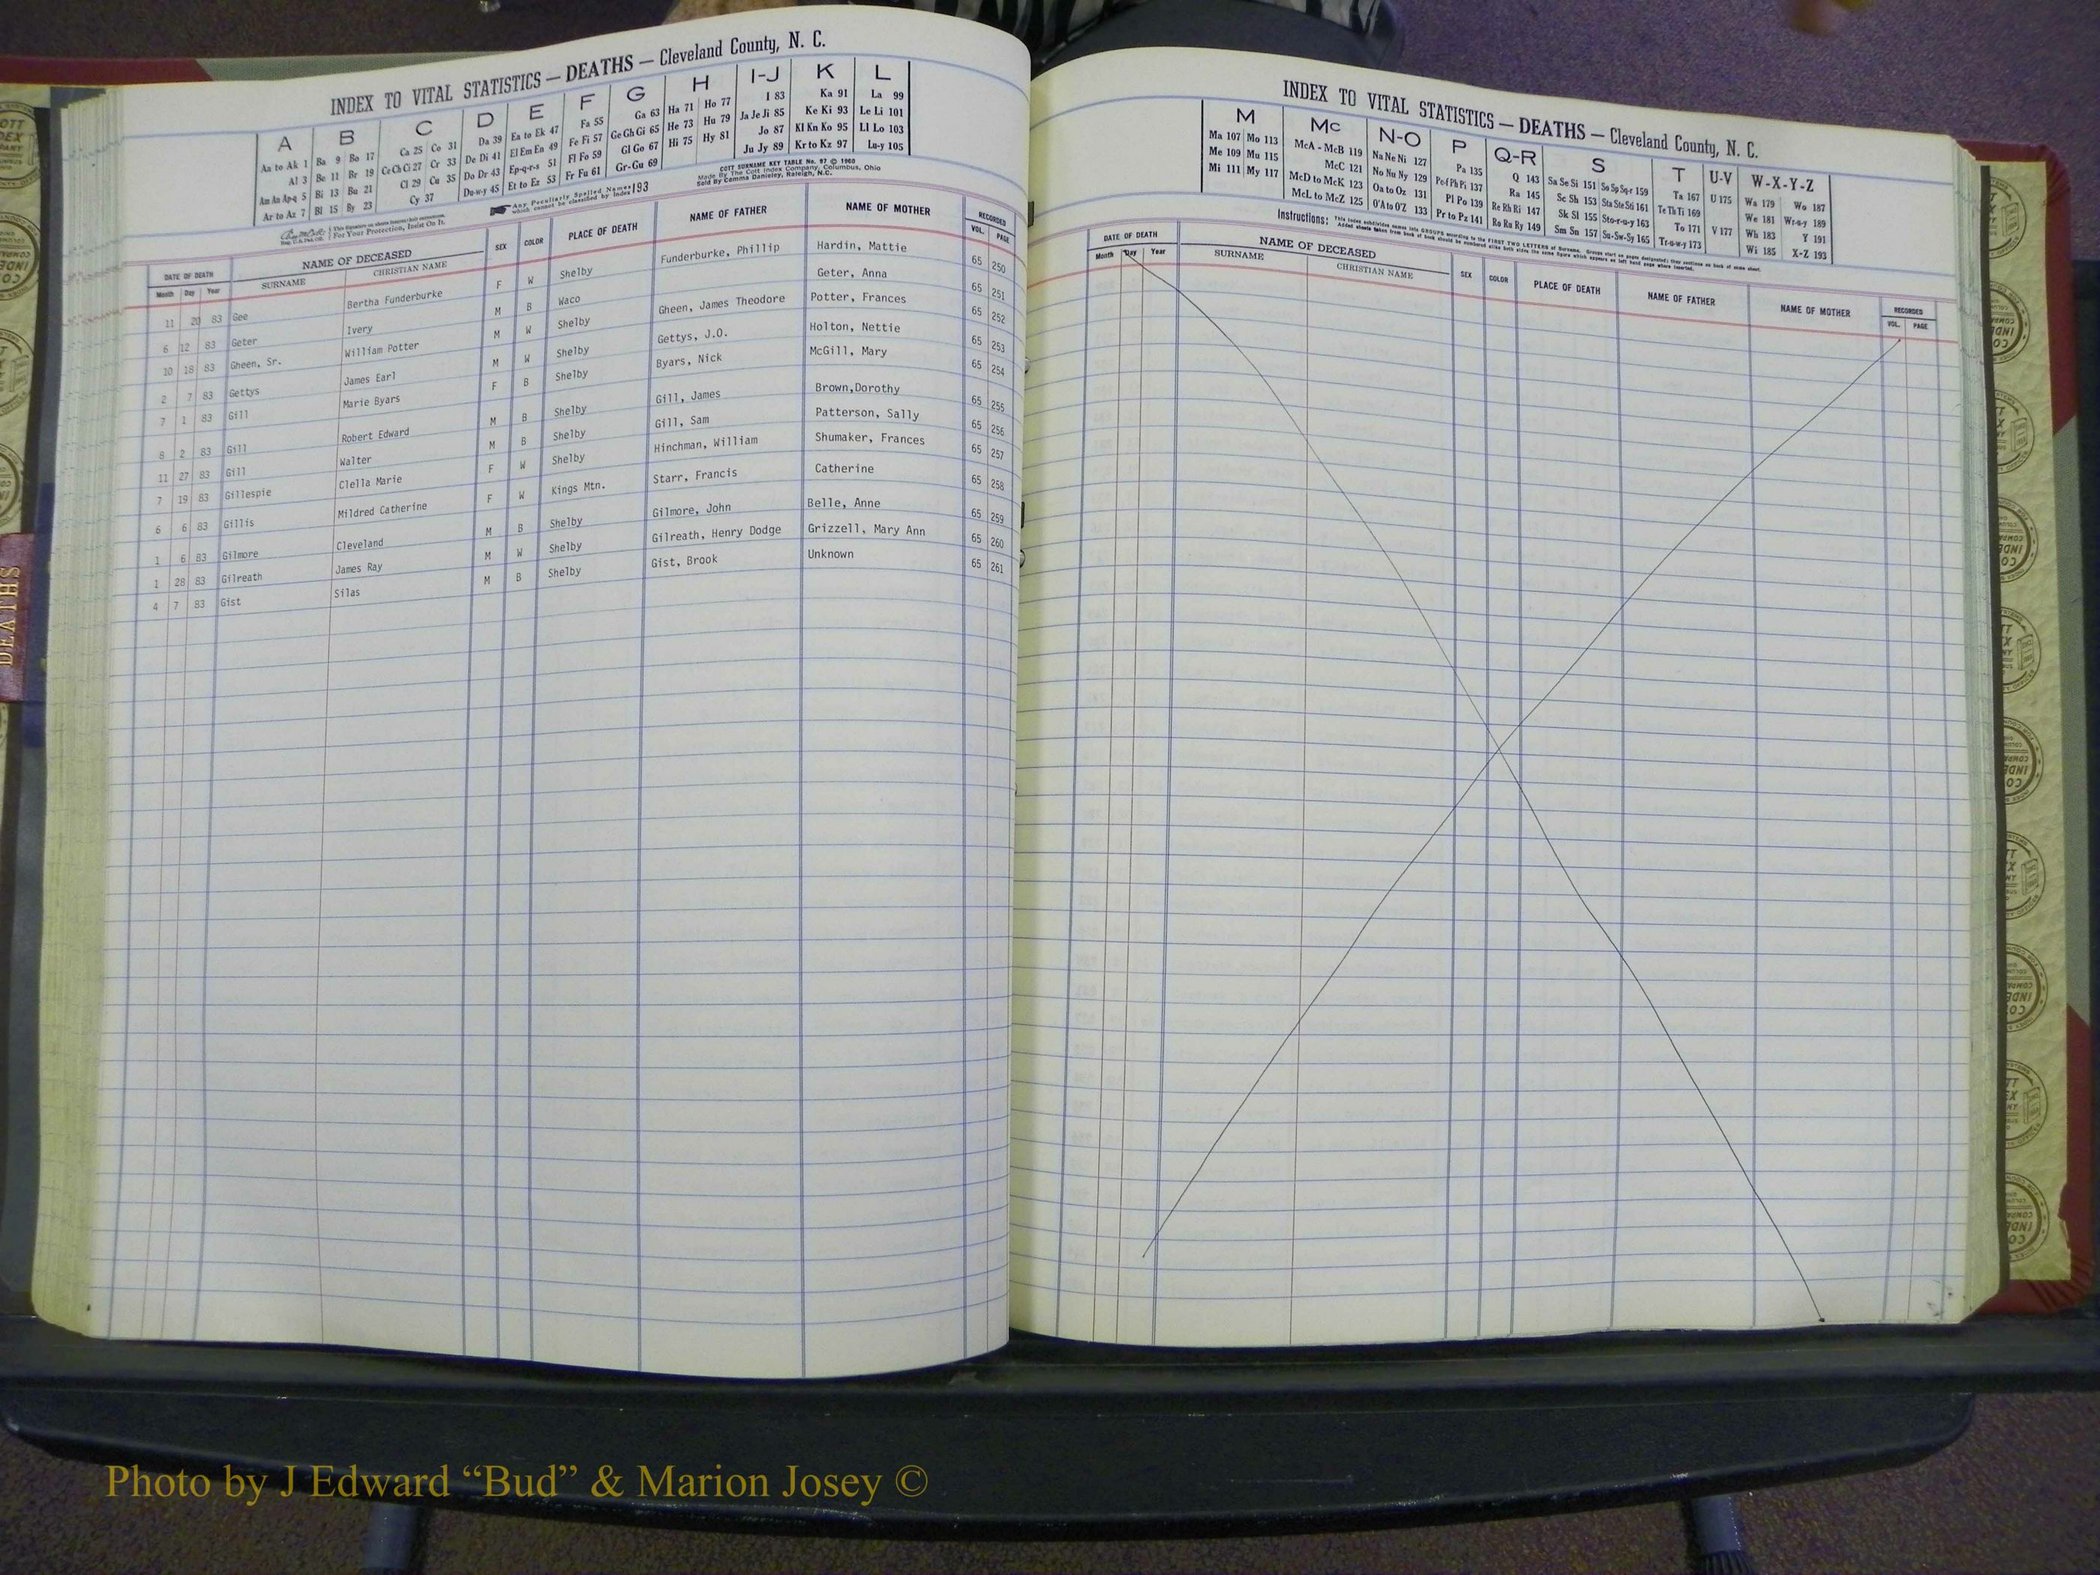 INDEX TO VITAL STATISTICS — DEATHS — Cleveland County, N. C.
A B C D E F G H I-J K L
Aa to Ak 1 Ba 9 Bo 17 Ca 25 Co 31 Da 39 Ea to Ek 47 Fa 55 Ga 63 Ha 71 Ho 77 I 83 Ka 91 La 99
Al 3 Be 11 Br 19 Ce Ch Ci 27 Cr 33 De Di 41 El Em En 49 Fe Fi 57 Ge Gh Gi 65 He 73 Hu 79 Ja Je Ji 85 Ke Ki 93 Le Li 101
Am An Ap-q 5 Bi 13 Bu 21 Cl 29 Cu 35 Do Dr 43 Ep-q-r-s 51 Fl Fo 59 Gl Go 67 Hi 75 Hy 81 Jo 87 Kl Kn Ko 95 Ll Lo 103
Ar to Az 7 Bl 15 By 23 Cy 37 Du-w-y 45 Et to Ez 53 Fr Fu 61 Gr-Gu 69 Ju Jy 89 Kr to Kz 97 Lu-y 105
COTT SURNAME KEY TABLE No. 97 © 1960
Made By The Cott Index Company, Columbus, Ohio
Sold By Camma Danieley, Raleigh, N.C.
Any Peculiarly Spelled Names which cannot be classified by Index 193
For Your Protection, Insist On It.
DATE OF DEATH NAME OF DECEASED SEX COLOR PLACE OF DEATH NAME OF FATHER NAME OF MOTHER RECORDED
Month Day Year SURNAME CHRISTIAN NAME VOL. PAGE
11 20 83 Gee Bertha Funderburke F W Shelby Funderburke, Phillip Hardin, Mattie 65 250
6 12 83 Geter Ivery M B Waco Geter, Anna 65 251
10 18 83 Gheen, Sr. William Potter M W Shelby Gheen, James Theodore Potter, Frances 65 252
2 7 83 Gettys James Earl M W Shelby Gettys, J.O. Holton, Nettie 65 253
7 1 83 Gill Marie Byars F B Shelby Byars, Nick McGill, Mary 65 254
8 2 83 Gill Robert Edward M B Shelby Gill, James Brown,Dorothy 65 255
11 27 83 Gill Walter M B Shelby Gill, Sam Patterson, Sally 65 256
7 19 83 Gillespie Clella Marie F W Shelby Hinchman, William Shumaker, Frances 65 257
6 6 83 Gillis Mildred Catherine F W Kings Mtn. Starr, Francis Catherine 65 258
1 6 83 Gilmore Cleveland M B Shelby Gilmore, John Belle, Anne 65 259
1 28 83 Gilreath James Ray M W Shelby Gilreath, Henry Dodge Grizzell, Mary Ann 65 260
4 7 83 Gist Silas M B Shelby Gist, Brook Unknown 65 261
INDEX TO VITAL STATISTICS — DEATHS — Cleveland County, N. C.
M Mc N-O P Q-R S T U-V W-X-Y-Z
Ma 107 Mo 113 McA - McB 119 Na Ne Ni 127 Pa 135 Q 143 Sa Se Si 151 So Sp Sq-r 159 Ta 167 U 175 Wa 179 Wo 187
Me 109 Mu 115 McC 121 No Nu Ny 129 Pe-f Ph Pi 137 Ra 145 Sc Sh 153 Sta Ste Sti 161 Te Th Ti 169 We 181 Wr-u-y 189
Mi 111 My 117 McD to McK 123 Oa to Oz 131 Pl Po 139 Re Rh Ri 147 Sk Sl 155 Sto-r-u-y 163 To 171 V 177 Wh 183 Y 191
McL to McZ 125 O'A to O'Z 133 Pr to Pz 141 Ro Ru Ry 149 Sm Sn 157 Su-Sw-Sy 165 Tr-u-w-y 173 Wi 185 X-Z 193
Instructions: This index subdivides names into GROUPS according to the FIRST TWO LETTERS of Surname. Groups start on pages designated; they continue on back of same sheet.
Added sheets taken from back of book should be numbered alike both sides the same figure which appears on left hand page where inserted.
DATE OF DEATH NAME OF DECEASED SEX COLOR PLACE OF DEATH NAME OF FATHER NAME OF MOTHER RECORDED
Month Day Year SURNAME CHRISTIAN NAME VOL. PAGE
DEATHS
Photo by J Edward “Bud” & Marion Josey ©